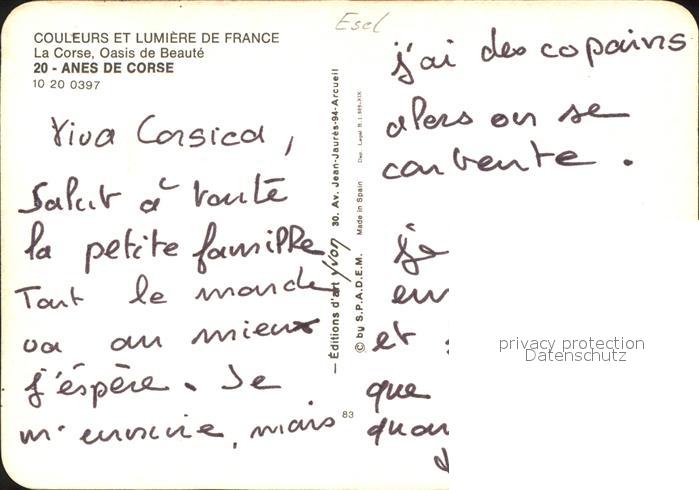 COULEURS ET LUMIÈRE DE FRANCE
La Corse, Oasis de Beauté
20 - ANES DE CORSE
10 20 0397
Viva Corsica,
Salut à toute
la petite famille
Tout le monde
va au mieux
j'éspère. Je
m'ennuie, mais
Esel
— Éditions d'art Yvon 30. Av. Jean-Jaurès-94-Arcueil
© by S.P.A.D.E.M. Made in Spain
83
j'ai des copains
alors on se
contente.
je
et
que
privacy protection
Datenschutz